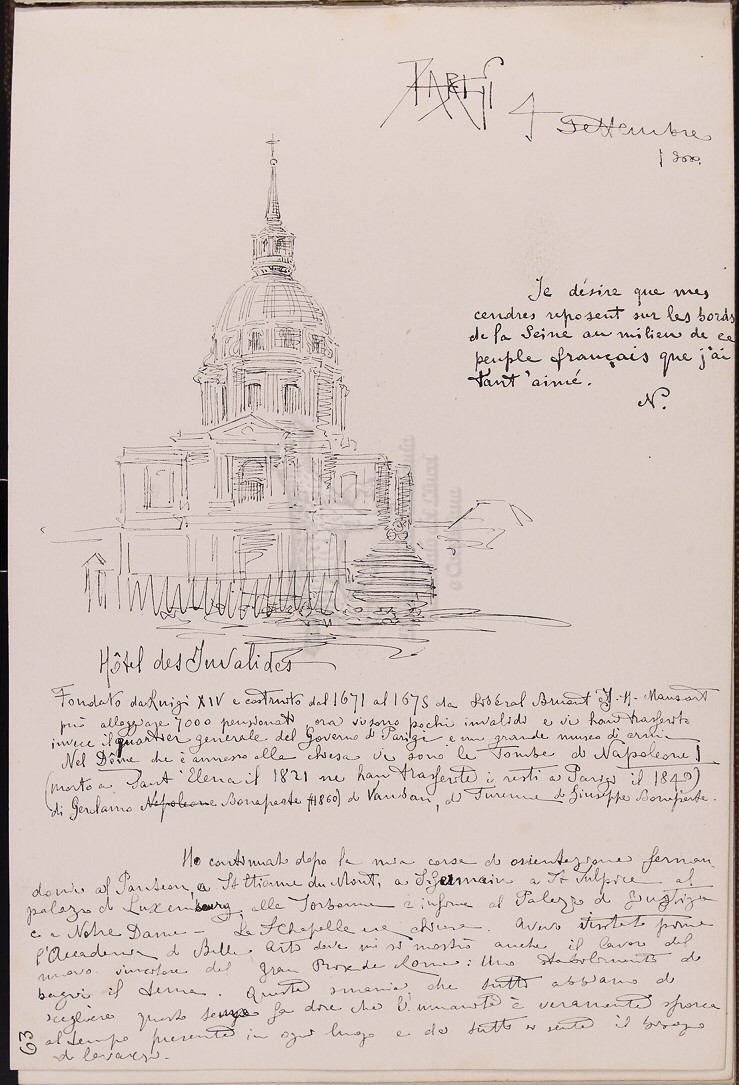 PARIGI
4 Settembre
1900.
Je désire que mes
cendres reposent sur les bords
de la Seine au milieu de ce
peuple français que j'ai
tant aimé.
N.
Hôtel des Invalides
Fondato da Luigi XIV e costruito dal 1671 al 1675 da Libéral Bruant e J. H. Mansart
può alloggiare 7000 pensionati ora vi sono pochi invalidi e vi han trasferito
invece il quartier generale del Governo di Parigi e un grande museo di armi
Nel Dôme che è annesso alla chiesa vi sono le Tombe di Napoleone I
(morto a Sant'Elena il 1821 ne han trasferito i resti a Parigi il 1840)
di Gerolamo Napoleone Bonaparte (1860) di Vauban, di Turenne di Giuseppe Bonaparte.
Ho continuato dopo la mia corsa di orientazione ferman
domi al Panteon, a St Etienne du Mont, a S. Germain a St Sulpice al
palazzo di Luxembourg, alla Sorbonne e infine al Palazzo di Giustizia
e a Notre Dame - La S Chapelle era chiusa. Avevo visitato prima
l'Accademia di Belle Arti dove mi si mostrò anche il lavoro del
nuovo vincitore del Gran Prix de Rome: Uno stabilimento di
bagni il tema. Questa smania che tutti abbiamo di
scegliere questo fa dire che l'umanità è veramente sporca
al tempo presente in ogni luogo e da tutti si sente il bisogno
di lavarsi.
63